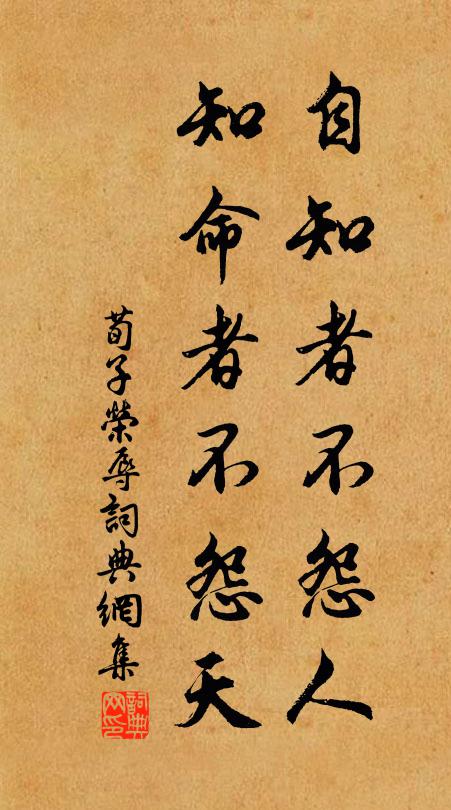 自知者不怨人
知命者不怨天
荀子榮辱詞典網集
詞典网印